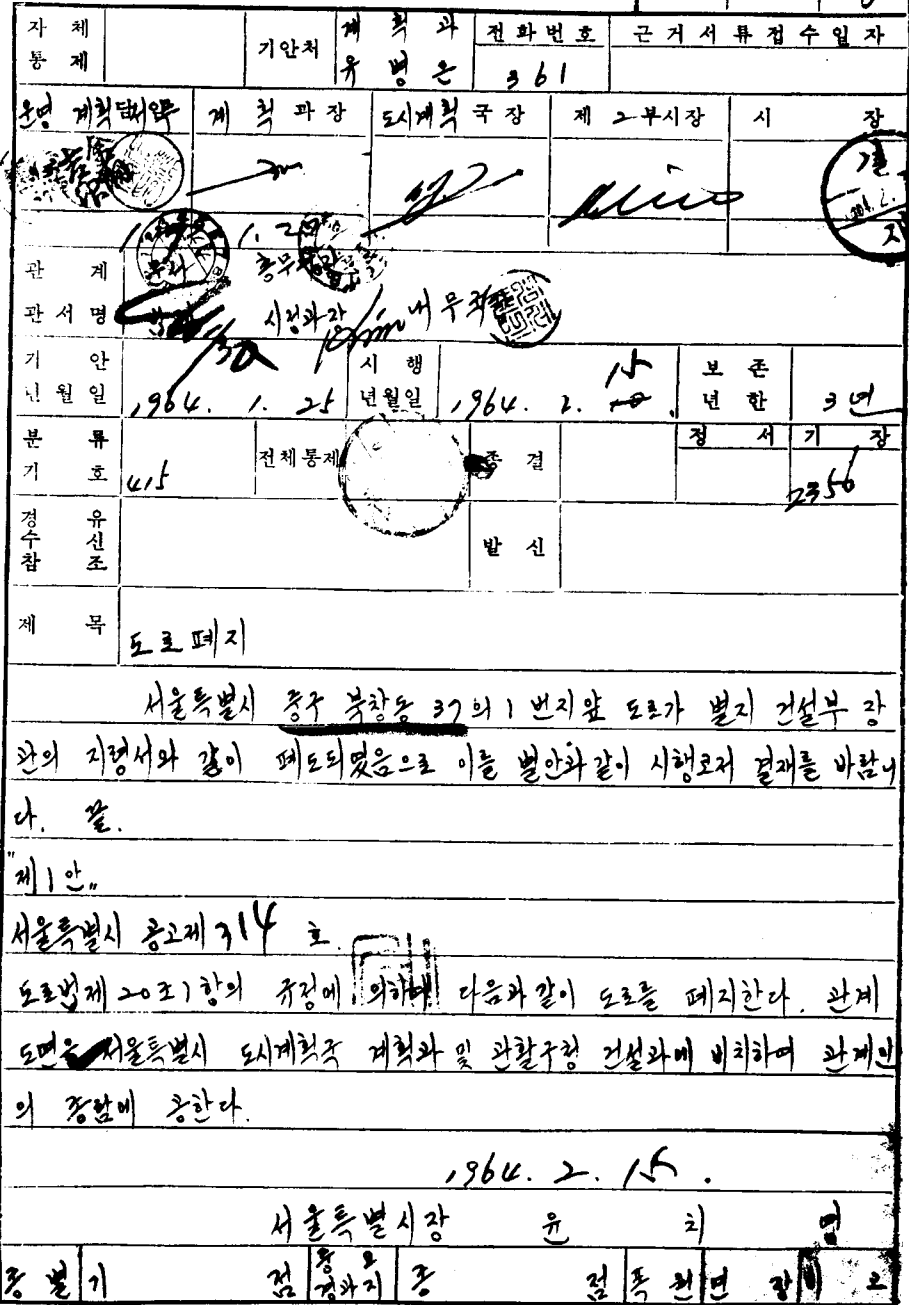 자체통제 기안처 계획과 유병은 전화번호 361 근거서류접수일자
운영계획 계획과장 도시계획국장 제2부시장 시장
1. 29
관계관서명 총무 시정과장 내무국
1/30
기안년월일 1964. 1. 25 시행년월일 1964. 2. 15 보존년한 3년
분류기호 415 전체통제 종결 정서 기장 2356
경유수신참조 발신
제목 도로폐지
서울특별시 중구 북창동 37의 1 번지앞 도로가 별지 건설부 장
관의 지령서와 같이 폐도되였음으로 이를 별안과 같이 시행코저 결재를 바랍니
다. 끝.
"제1안"
서울특별시 공고제 314 호
도로법제 20조1항의 규정에 의하여 다음과 같이 도로를 폐지한다. 관계
도면을 서울특별시 도시계획국 계획과 및 관할구청 건설과에 비치하여 관계인
의 종람에 공한다.
1964. 2. 15.
서울특별시장 윤치영
종별 기점 중요경과지 종점 폭원 연장